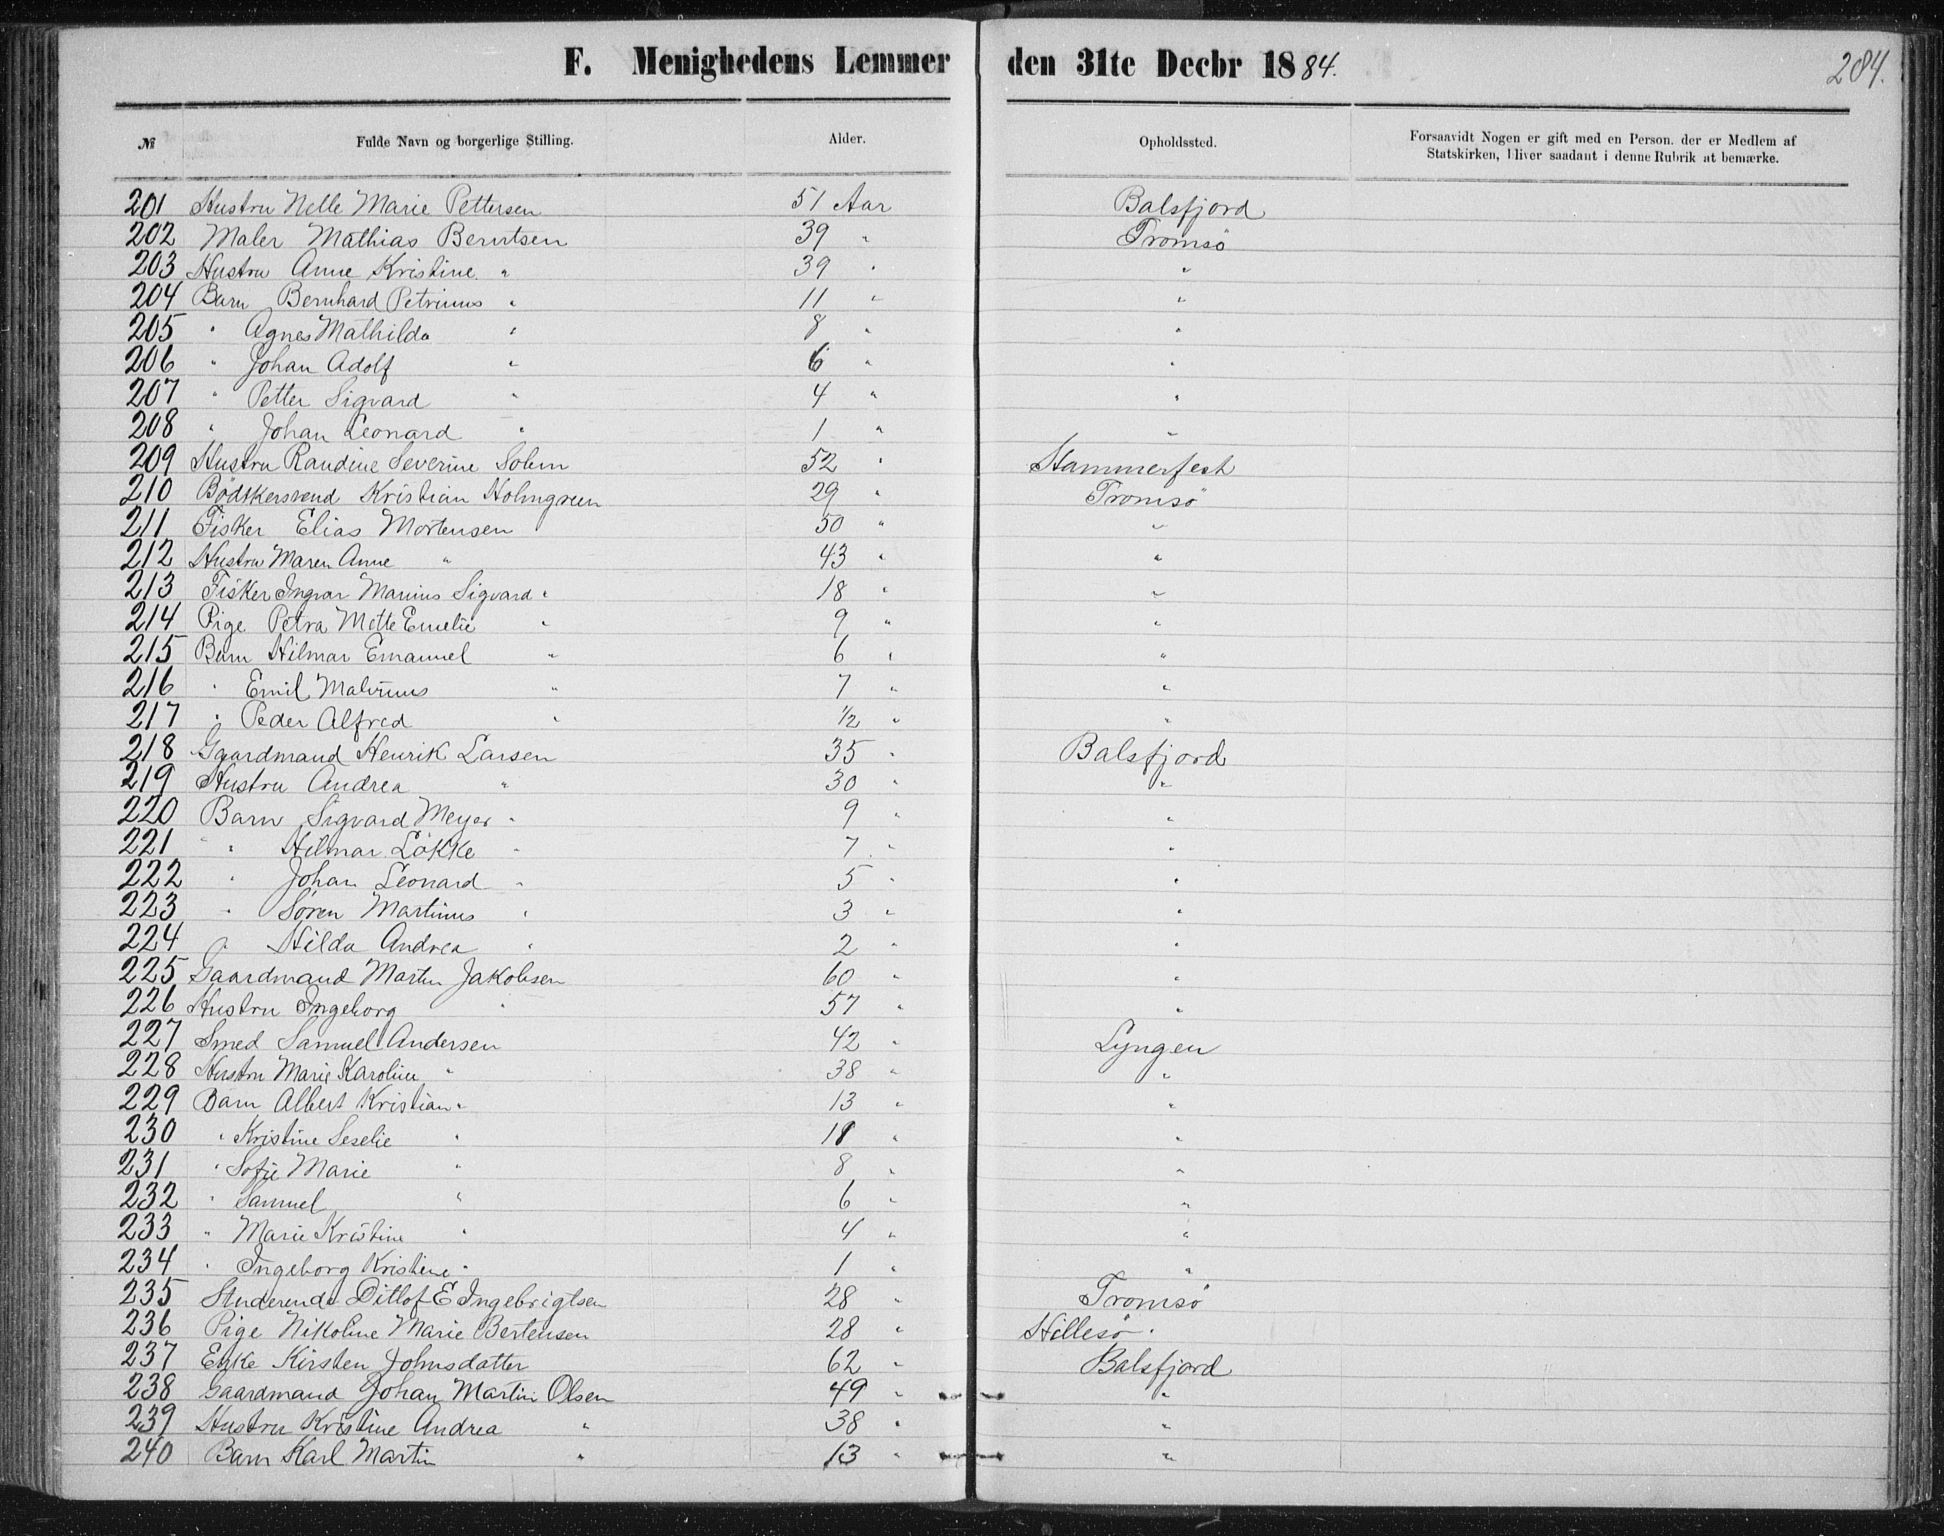 F. Menighedens Lemmer den 31te Decbr 1884.
284.
№ Fulde Navn og borgerlige Stilling. Alder. Opholdssted. Forsaavidt Nogen er gift med en Person. der er Medlem af
Statskirken, bliver saadant i denne Rubrik at bemærke.
201 Hustru Nelle Marie Pettersen 51 Aar Balsfjord
202 Maler Mathias Berntsen 39 " Tromsö
203 Hustru Anne Kristine " 39 " "
204 Barn Bernhard Petrinus " 11 " "
205 " Agnes Mathilda " 8 " "
206 " Johan Adolf " 6 " "
207 " Petter Sigvard " 4 " "
208 " Johan Leonard " 1 " "
209 Hustru Randine Severine Solem 52 " Hammerfest
210 Bödtkersvend Kristian Holmgreen 29 " Tromsö
211 Fisker Elias Mortensen 50 " "
212 Hustru Maren Anne " 43 " "
213 Fisker Ingvar Marius Sigvard " 18 " "
214 Pige Petra Mette Emelie " 9 " "
215 Barn Hilmar Emanuel " 6 " "
216 " Emil Malvinus " 7 " "
217 " Peder Alfred " 1/2 " "
218 Gaardmand Henrik Larsen 35 " Balsfjord
219 Hustru Andrea " 30 " "
220 Barn Sigvard Meyer " 9 " "
221 " " Hilmar Lökke " 7 " "
222 " Johan Leonard " 5 " "
223 " Sören Martinus " 3 " "
224 " Hilda Andrea " 2 " "
225 Gaardmand Martin Jakobsen 60 " "
226 Hustru Ingeborg " 57 " "
227 Smed Samuel Andersen 42 " Lyngen
228 Hustru Marie Karoline " 38 " "
229 Barn Albert Kristian " 13 " "
230 " Kristine Seselie " 11 " "
231 " Sofie Marie " 8 " "
232 " Samuel " 6 " "
233 " Marie Kristine " 4 " "
234 " Ingeborg Kristine " 1 " "
235 Studerende Ditlof E Ingebrigtsen 28 " Tromsö
236 Pige Nikoline Marie Bertensen 28 " Hillesö.
237 Enke Kirsten Johnsdatter 62 " Balsfjord
238 Gaardmand Johan Martin Olsen 49 " "
239 Hustru Kristine Andrea " 38 " "
240 Barn Karl Martin " 13 " "